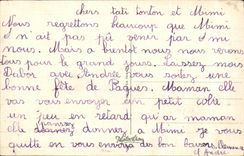 chers tati tonton et Mimi
Nous regrettons beaucoup que Mimi
n'ait pas pu venir par mi
nous. Mais a bientot nous nous verons
tous pour le grand jour. Laissez mois
Dabor avec André vous souter une
bonne fête de Pâques. Maman elle
vas vous envoyer un petit colie
un peu en retard qu'ar maman
elle donner a Mimi je vous
quitte en vous envoyer des bon baisers
et André